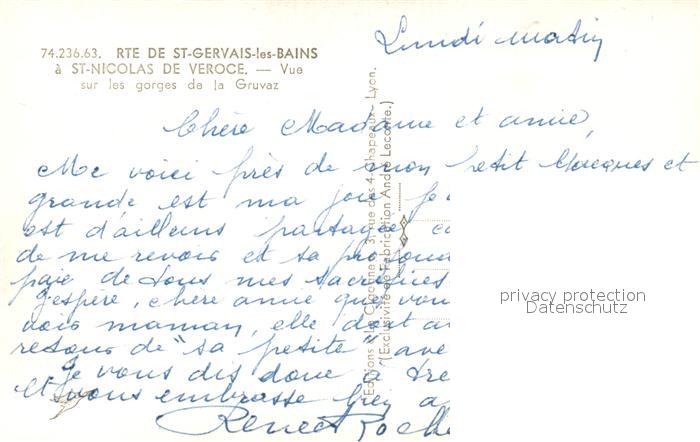 Lundi matin
74.236.63. RTE DE ST-GERVAIS-les-BAINS
à ST-NICOLAS DE VEROCE. — Vue
sur les gorges de la Gruvaz
Chère Madame et amie,
Me voici près de mon petit Jacques et
grande est ma joie
est d'ailleurs partagée
de me revoir et sa
paie de tous mes sacrifices
J'espère, chère amie que vou
voir maman, elle doit
retour de "sa petite" ave
Je vous dis donc à
Et vous embrasse bien a
Renée
Editions "La Cigogne" 3, rue des 4-Chapeaux - Lyon.
(Exclusivité de Fabrication André Leconte.)
privacy protection
Datenschutz